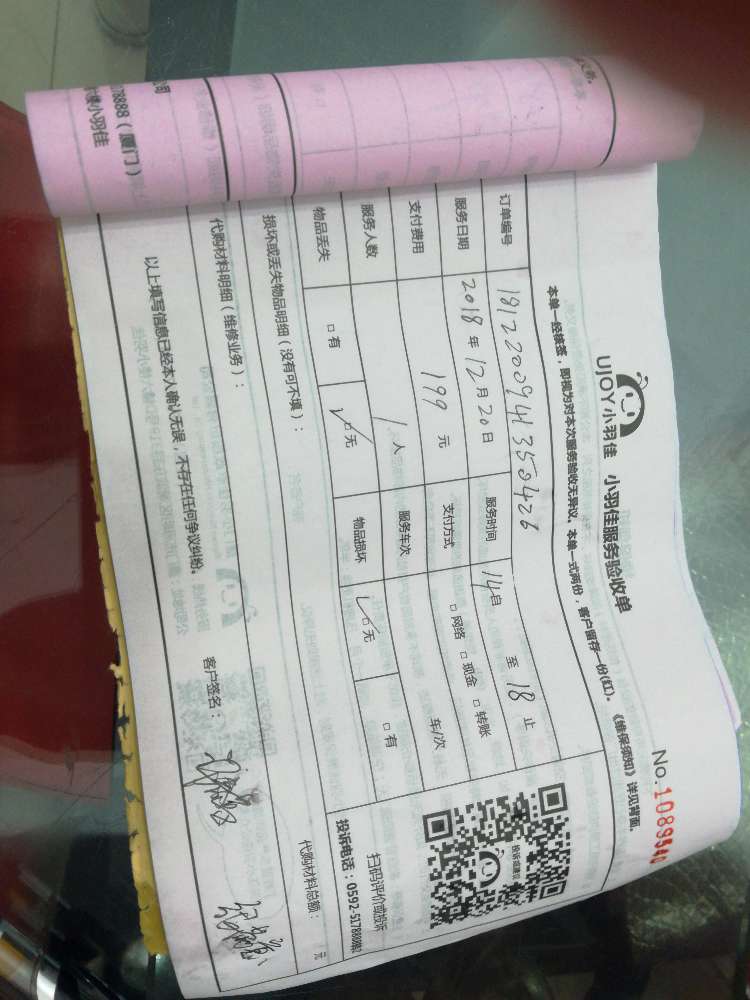 UJOY小羽佳 小羽佳服务验收单
No.1089540
本单一经核签，即视为对本次服务验收无异议。本单一式两份，客户留存一份(红)。 《维保须知》详见背面。
订单编号 1812200941350426
服务日期 2018年12月20日 服务时间 14自 至 18止
支付费用 199 元 支付方式 □网络 □现金 □转账
服务人数 1人 服务车次 车/次
物品丢失 □有 □无 物品损坏 □无 □有
损坏或丢失物品明细（没有可不填）：
代购材料明细（维修业务）：
代购材料总额： 元
投诉保修
扫码评价或投诉
投诉电话：0592-5178888转2
以上填写信息已经本人确认无误，不存在任何争议纠纷。
客户签名：
公司
178888（厦门）
小羽佳